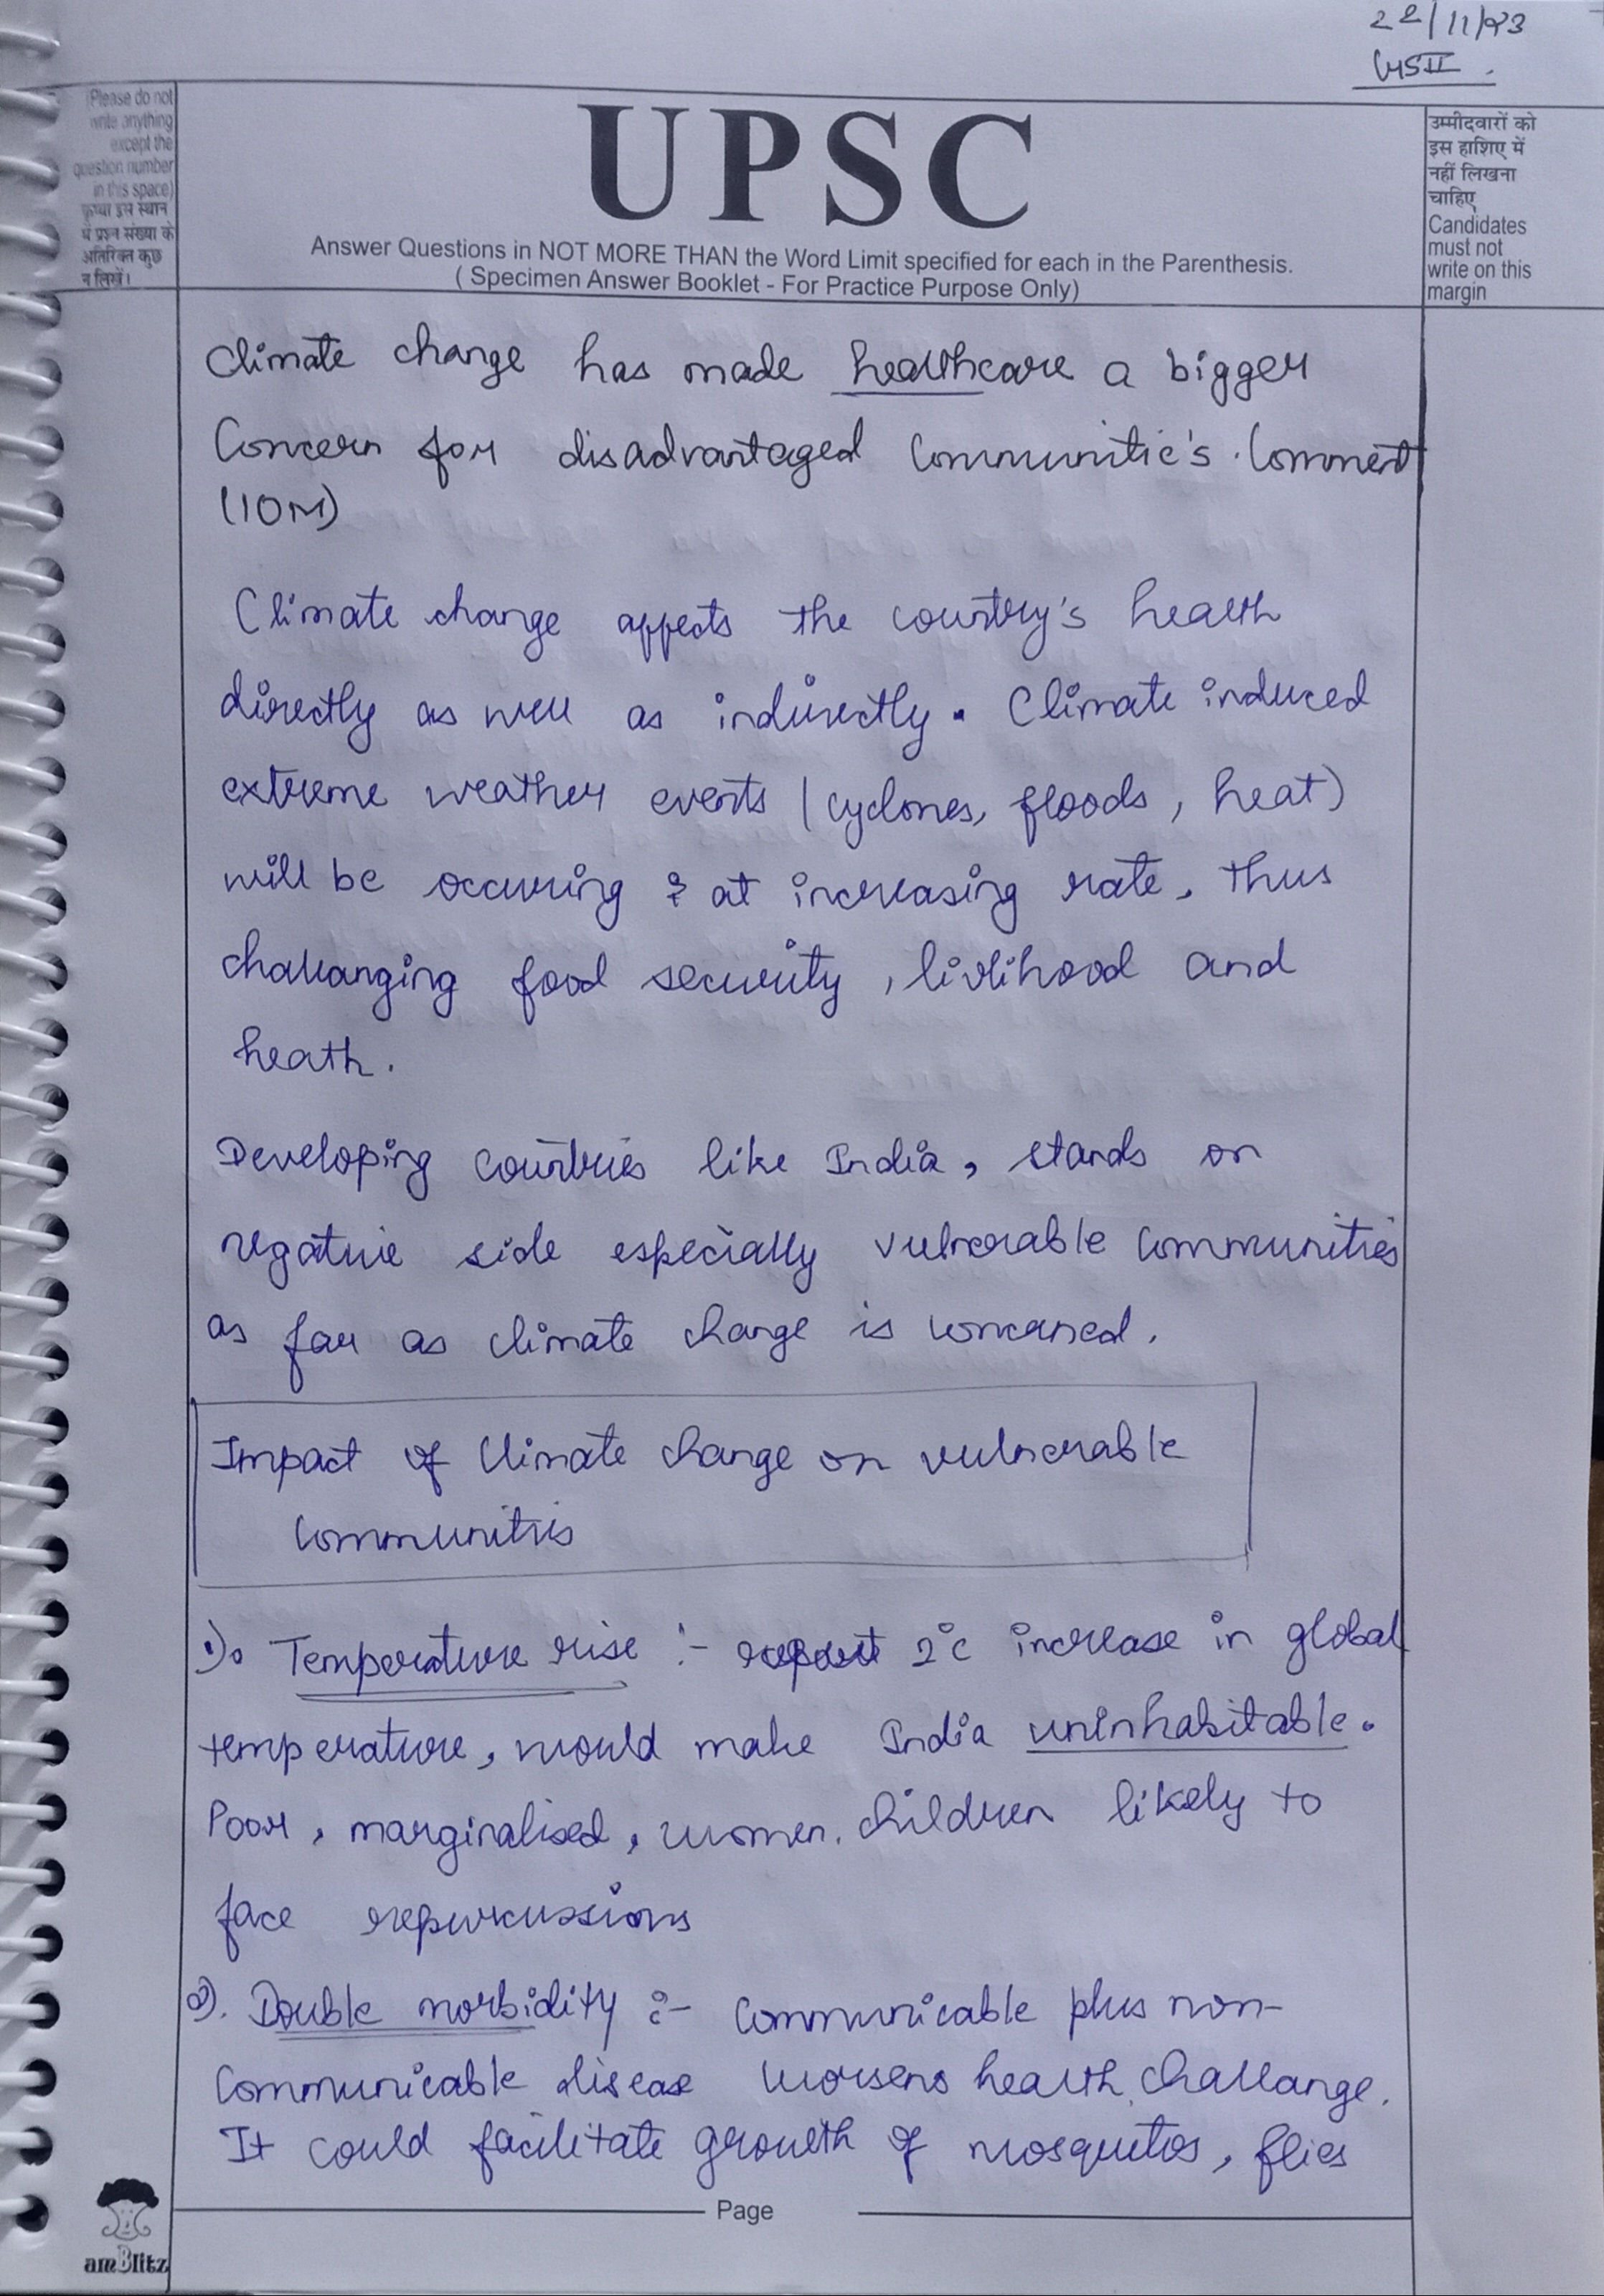 22/11/23
GSII.
(Please do not
write anything
except the
question number
in this space)
कृपया इस स्थान
में प्रश्न संख्या के
अतिरिक्त कुछ
न लिखें।
UPSC
Answer Questions in NOT MORE THAN the Word Limit specified for each in the Parenthesis.
( Specimen Answer Booklet - For Practice Purpose Only)
उम्मीदवारों को
इस हाशिए में
नहीं लिखना
चाहिए
Candidates
must not
write on this
margin
Climate change has made healthcare a bigger
Concern for disadvantaged Communitie's. Comment
(10M)
Climate change affects the country's health
directly as well as indirectly. Climate induced
extreme weather events (cyclones, floods, heat)
will be occuring & at increasing rate, thus
challanging food security, livlihood and
heath.
Developing countries like India, stands on
negative side especially vulnerable communities
as far as climate change is concerned.
Impact of Climate change on vulnerable
communities
1). Temperature rise :- 2°c increase in global
temperature, would make India uninhabitable.
Poor, marginalised, women, children likely to
face repurcussions
2). Double morbidity :- Communicable plus non-
Communicable disease worsens health challange.
It could facilitate growth of mosquitos, flies
Page
amBlitz